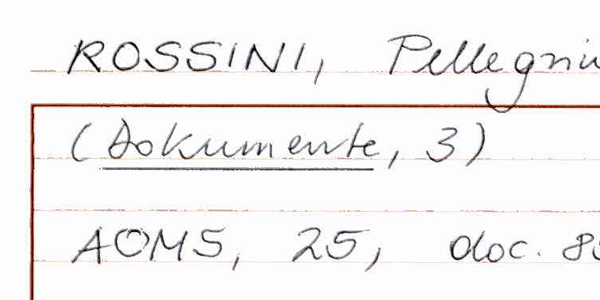 ROSSINI, Pellegrin
(Dokumente, 3)
AOMS, 25, doc. 8